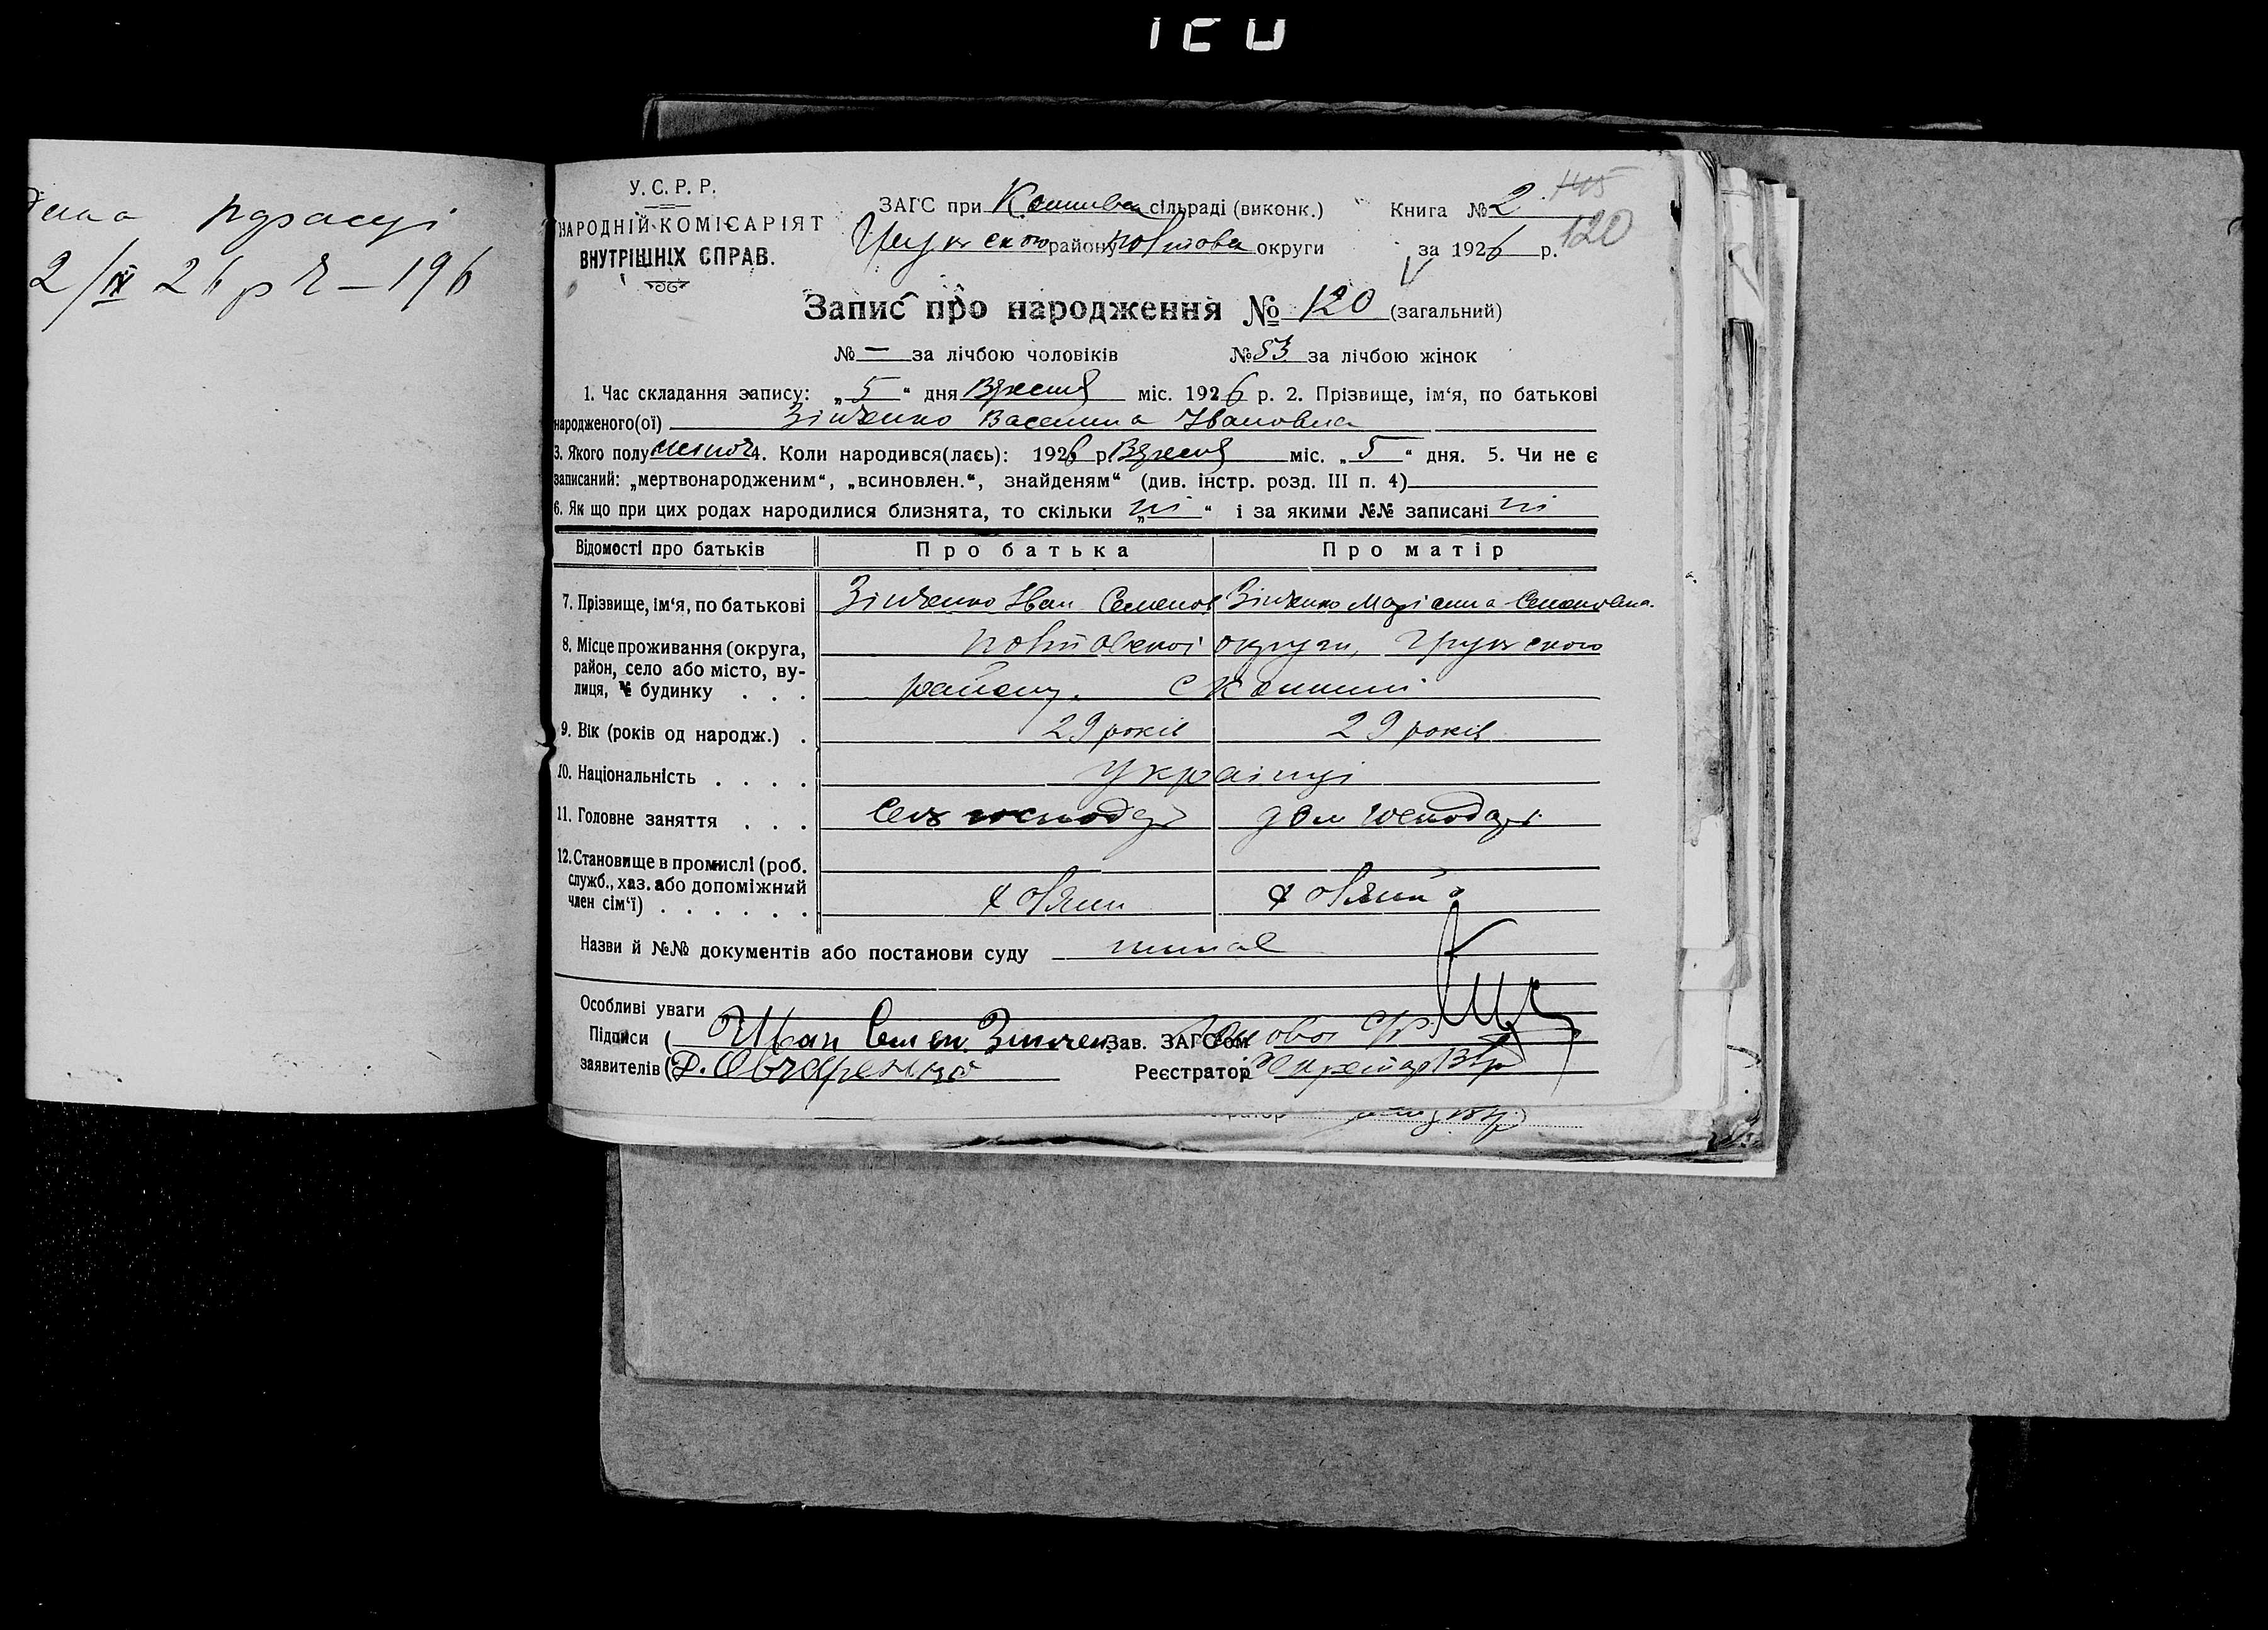 120
У. С. Р. Р.
НАРОДНІЙ КОМІСАРІЯТ
ВНУТРІШНІХ СПРАВ.
ЗАГС при сільраді (виконк.)
Грунського району Полтавс округи
Книга № 2
145
120
за 1926 р.
Запис про народження № 120 (загальний)
№ — за лічбою чоловіків № 53 за лічбою жінок
1. Час складання запису: „5“ дня Вересня міс. 1926 р. 2. Прізвище, ім‘я, по батькові
народженого(ої) Зінченко Василина Івановна
3. Якого полу жіноч 4. Коли народився(лась): 1926 р. Вересня міс. „5“ дня. 5. Чи не є
записаний: „мертвонародженим“, „всиновлен.“, знайденям“ (див. інстр. розд. III п. 4)
6. Як що при цих родах народилися близнята, то скільки „ні“ і за якими №№ записані ні
Відомості про батьків Про батька Про матір
7. Прізвище, ім‘я, по батькові Зінченко Іван Семенов Зінченко Маріанна Семеновна.
8. Місце проживання (округа,
район, село або місто, ву-
лиця, № будинку . . .
Полтавської округи, Грунського
району. с
9. Вік (років од народж.) . 29 років 29 років
10. Національність . . . . Українці
11. Головне заняття . . . Сель господар дом господар
12. Становище в промислі (роб.
служб., хаз. або допоміжний
член сім‘ї) . . . . . .
Назви й №№ документів або постанови суду немає
Особливі уваги
Підписи ( Иван Семен. Зинчен Зав. ЗАГСом Голова С/Р
заявителів ( Д. Овчаренко Реєстратор Секретар